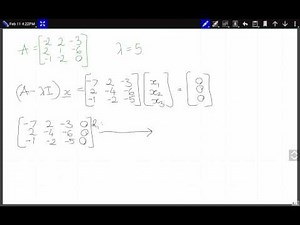 Feb 11 4:22PM
A = [-2 2 -3; 2 1 -6; -1 -2 0] λ = 5
(A - λI) x = [-7 2 -3; 2 -4 -6; -1 -2 -5] [x₁; x₂; x₃] = [0; 0; 0]
[-7 2 -3 0; 2 -4 -6 0; -1 -2 -5 0]